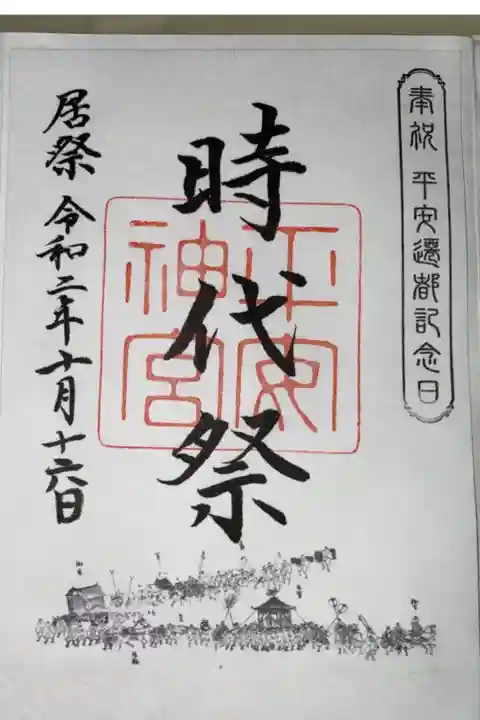 奉祝 平安遷都記念日
時代祭
平安
神宮
居祭 令和二年十月十六日